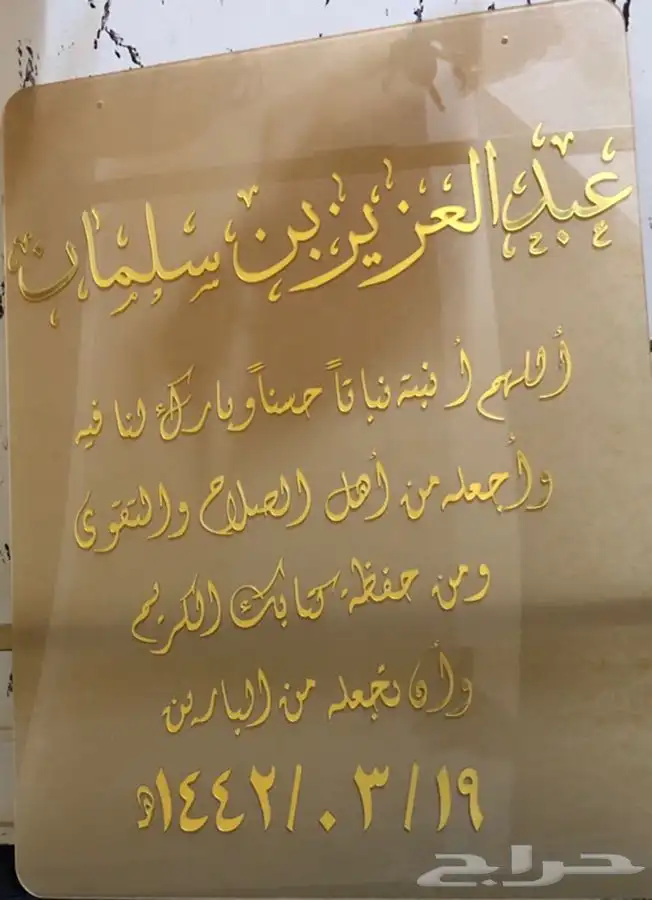 عبدالعزيز بن سلمان
أللهم أنبته نباتاً حسناً وبارك لنا فيه
وأجعله من أهل الصلاح والتقوى
ومن حفظة كتابك الكريم
وأن تجعله من البارين
١٩/٠٣/١٤٤٢هـ
حراج